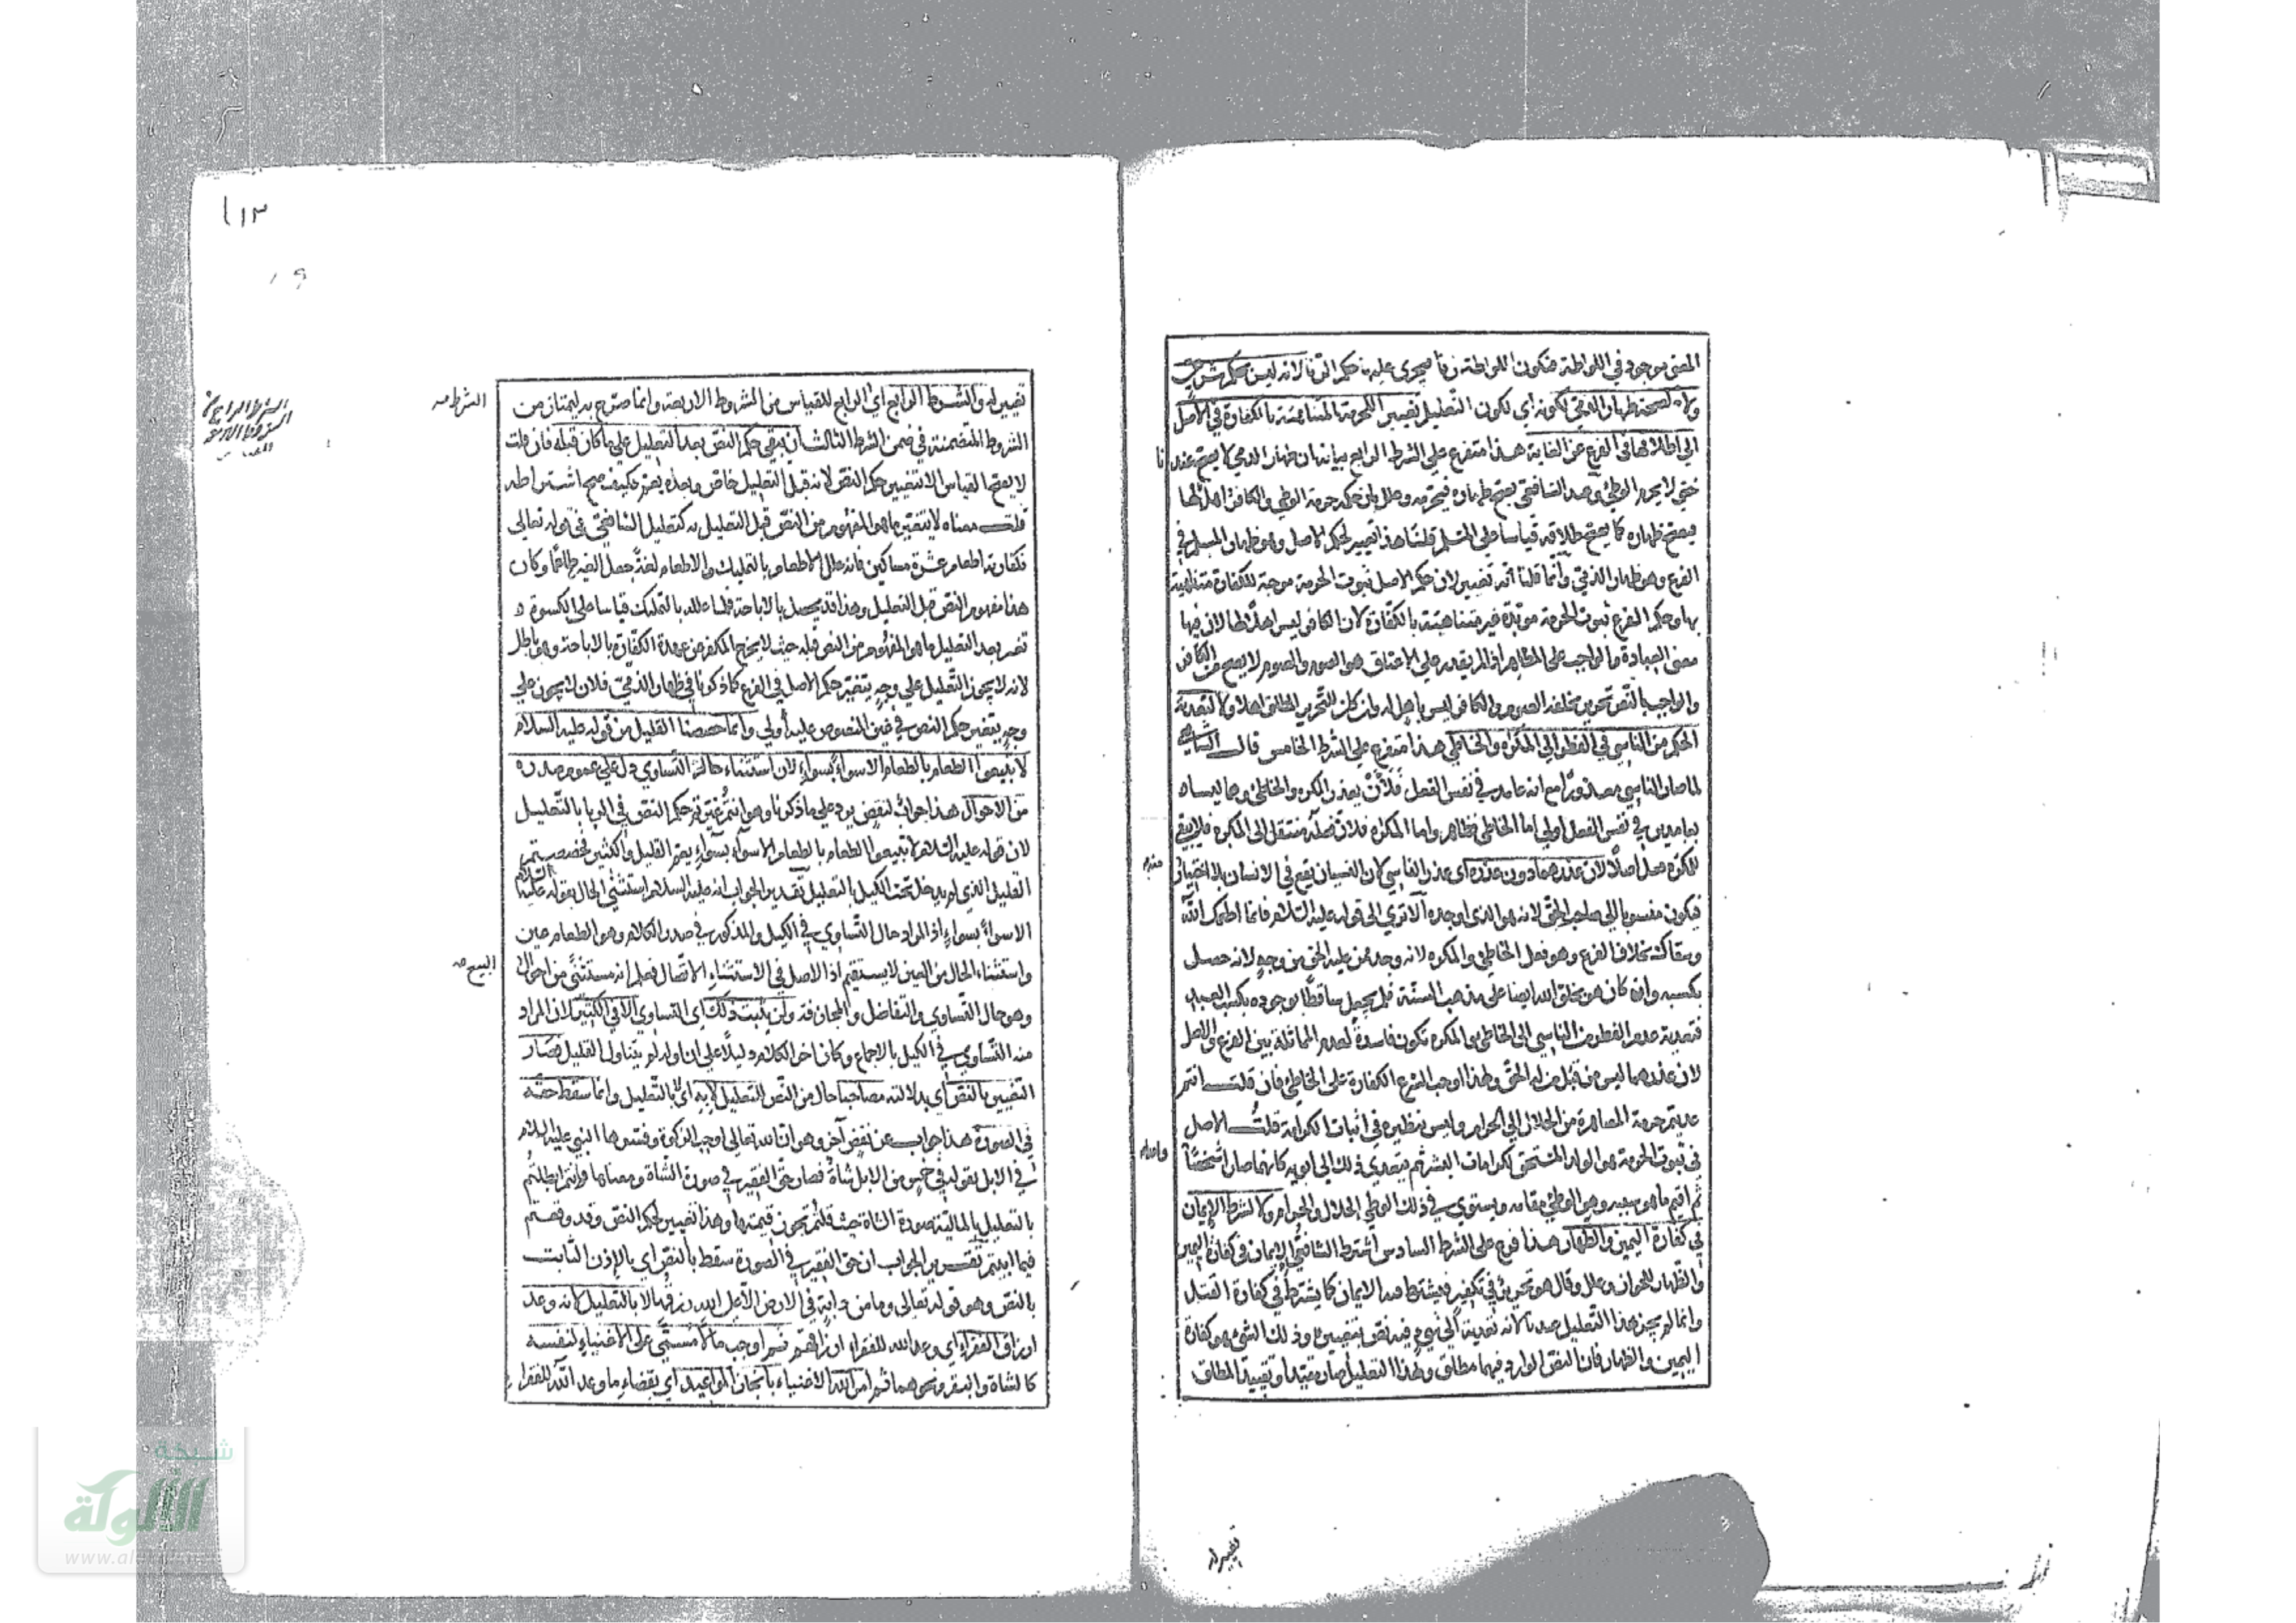 المعنى موجود في اللواطة فتكون اللواطة زنا فيجري عليها حكم الزنا لانه ليس بحكم شرعي
ولا لصحة ظهار الذمي لكونه اي لكون التعليل تغييرا للحرمة المتناهية بالكفارة في الاصل
الى اطلاقها في الفرع عن الغاية هذا متفرع على الشرط الرابع بيانه ان ظهار الذمي لا يصح عندنا
حتى لا يحرم الوطئ وعند الشافعي يصح ظهاره فيحرمه وعلل بان حكمه حرمة الوطئ والكافر اهل لها
فيصح ظهاره كما يصح طلاقه قياسا على المسلم قلنا هذا تغيير لحكم الاصل وهو ظهار المسلم في
الفرع وهو ظهار الذمي وانما قلنا انه تغيير لان حكم الاصل ثبوت الحرمة موجبة للكفارة متناهية
بها وحكم الفرع ثبوت الحرمة مؤبدة غير متناهية بالكفارة لان الكافر ليس اهلا لها لان فيها
معنى العبادة والواجب على المظاهر اذا لم يقدر على الاعتاق هو الصوم والصوم لا يصح من الكافر
والواجب بالنص تحرير يخلفه الصوم والكافر ليس باهل له وان كان للتحرير المطلق اهلا ولا لتعدية
الحكم من الناسي في الفطر الى المكره والخاطئ هذا متفرع على الشرط الخامس قال الشافعي
لما صار الناسي معذورا مع انه عامد في نفس الفعل فلأن يعذر المكره والخاطئ وهما ليسا
بعامدين في نفس الفعل اولى اما الخاطئ فظاهر واما المكره فلان فعله منتقل الى المكره فلا يبقى
للمكره فعل اصلا لان عذرهما دون عذره اي عذر الناسي لان النسيان يقع في الانسان بلا اختيار
فيكون منسوبا الى صاحب الحق لانه هو الذي اوجده ألا ترى الى قوله عليه السلام فانما اطعمك الله
وسقاك بخلاف الفرع وهو فعل الخاطئ والمكره لانه وجد ممن عليه الحق من وجه لانه حصل
بكسبه وان كان هو بخلق الله ايضا على مذهب السنة فلم يجعل ساقطا بوجوده بكسب العبد
فتعدية عدم الفطر من الناسي الى الخاطئ والمكره تكون فاسدة لعدم المماثلة بين الفرع والاصل
لان عذرهما ليس من قبل من له الحق ولهذا اوجب الشرع الكفارة على الخاطئ فان قلت انتم
عديتم حرمة المصاهرة من الحلال الى الحرام وليس بنظيره في اثبات الكرامة قلت الاصل
في ثبوت الحرمة هو الولد المستحق لكرامات البشر ثم يتعدى ذلك الى ابويه كانهما صارا شخصا
ثم اقيم ما هو سببه وهو الوطئ مقامه ويستوي في ذلك الوطئ الحلال والحرام ولا لشرط الايمان
في كفارة اليمين والظهار هذا فرع على الشرط السادس اشترط الشافعي الايمان في كفارة اليمين
والظهار للجواز وعلل وقال هو تحرير في تكفير فيشترط فيه الايمان كما يشترط في كفارة القتل
وانما لم يجز هذا التعليل عندنا لانه تعدية الى شيء فيه نص بتغييره وذلك الشيء هو كفارة
اليمين والظهار فان النص الوارد فيهما مطلق وبهذا التعليل صار مقيدا وتقييد المطلق
واحدا
تغيير له
تغيير له والشرط الرابع اي الرابع للقياس من الشروط الاربعة وانما صرح به ليمتاز من
الشرط
الشروط المتضمنة في ضمن الشرط الثالث ان يبقى حكم النص بعد التعليل على ما كان قبله فان قلت
لا يصح القياس الا بتغيير حكم النص لانه قبل التعليل خاص وبعده يعم فكيف صح اشتراطه
قلت معناه لا يتغير ما هو المفهوم من النص قبل التعليل به كتعليل الشافعي في قوله تعالى
فكفارته اطعام عشرة مساكين فانه علل الاطعام بالتمليك والاطعام لغة جعل الغير طاعما وكان
هذا مفهوم النص قبل التعليل وهذا قد يحصل بالاباحة فلما علله بالتمليك قياسا على الكسوة
تغير بعد التعليل ما هو المفهوم من النص قبله حيث لا يخرج المكفر من عهدة الكفارة بالاباحة وهو باطل
لانه لا يجوز التعليل على وجه يتغير حكم الاصل في الفرع كما ذكرنا في ظهار الذمي فلان لا يجوز على
وجه يتغير حكم النص في عين المنصوص عليه أولى وانما خصصنا القليل من قوله عليه السلام
لا تبيعوا الطعام بالطعام الا سواء بسواء لان استثناء حالة التساوي دل على عموم صدره
من الاحوال هذا جواب لنقض يرد على ما ذكرنا وهو انتم غيرتم حكم النص في الربا بالتعليل
لان قوله عليه السلام لا تبيعوا الطعام بالطعام الا سواء بسواء يعم القليل والكثير فخصصتم
القليل الذي لم يدخل تحت الكيل بالتعليل تقدير الجواب انه عليه السلام استثنى الحال بقوله عليه السلام
الا سواء بسواء اذ المراد حال التساوي في الكيل والمذكور في صدر الكلام وهو الطعام عين
واستثناء الحال من العين لا يستقيم اذ الاصل في الاستثناء الاتصال فعلم انه مستثنى من احوال
البيع
وهو حال التساوي والتفاضل والمجازفة ولن يثبت ذلك اي التساوي الا في الكثير لان المراد
منه التساوي في الكيل بالاجماع وكان اخر الكلام دليلا على ان اوله لم يتناول القليل فصار
التغيير بالنص اي بدلالته مصاحبا حال من النص التعليل لا به اي لا بالتعليل وانما سقط حقه
في الصورة هذا جواب عن نقض آخر وهو ان الله تعالى اوجب الزكوة وفسرها النبي عليه السلام
في الابل بقوله في خمس من الابل شاة فصار حق الفقير في صورة الشاة ومعناها وانتم ابطلتم
بالتعليل بالمالية صورة الشاة حيث قلتم تجوز قيمتها وهذا تغيير لحكم النص وقد وقعتم
فيما ابيتم تقرير الجواب ان حق الفقير في الصورة سقط بالنص اي بالاذن الثابت
بالنص وهو قوله تعالى وما من دابة في الارض الا على الله رزقها لا بالتعليل لانه وعد
ارزاق الفقراء اي وعد الله للفقراء ارزاقهم ثم اوجب مالا مسمى على الاغنياء لنفسه
كالشاة والبقر ونحوهما ثم امر الله الاغنياء بانجاز المواعيد اي بقضاء ما وعد الله للفقراء
١١٣
شبكة
الألوكة